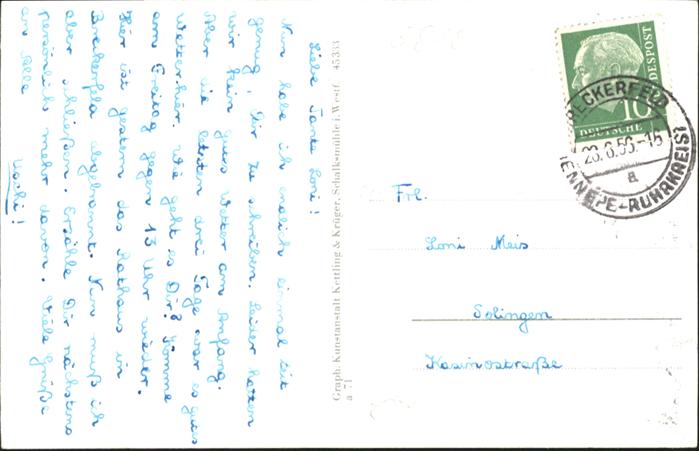 Liebe Tante Loni!
Nun habe ich endlich einmal Zeit
genug, Dir zu schreiben. Leider hatten
wir kein gutes Wetter am Anfang.
Aber die letzten drei Tage war es gutes
Wetter hier. Wie geht es Dir? Komme
am Freitag gegen 13 Uhr wieder.
Hier ist gestern das Rathaus in
Breckerfeld abgebrannt. Nun muß ich
aber schließen. Erzähle Dir nächstens
persönlich mehr davon. Viele Grüße
an Alle
Uschi!
Graph. Kunstanstalt Kettling & Krüger, Schalksmühle i. Westf. 45333
a 71
10
DEUTSCHE
BUNDESPOST
BRECKERFELD
28.6.56-15
a
(ENNEPE-RUHRKREIS)
Frl.
Loni Meis
Solingen
Kasinostraße